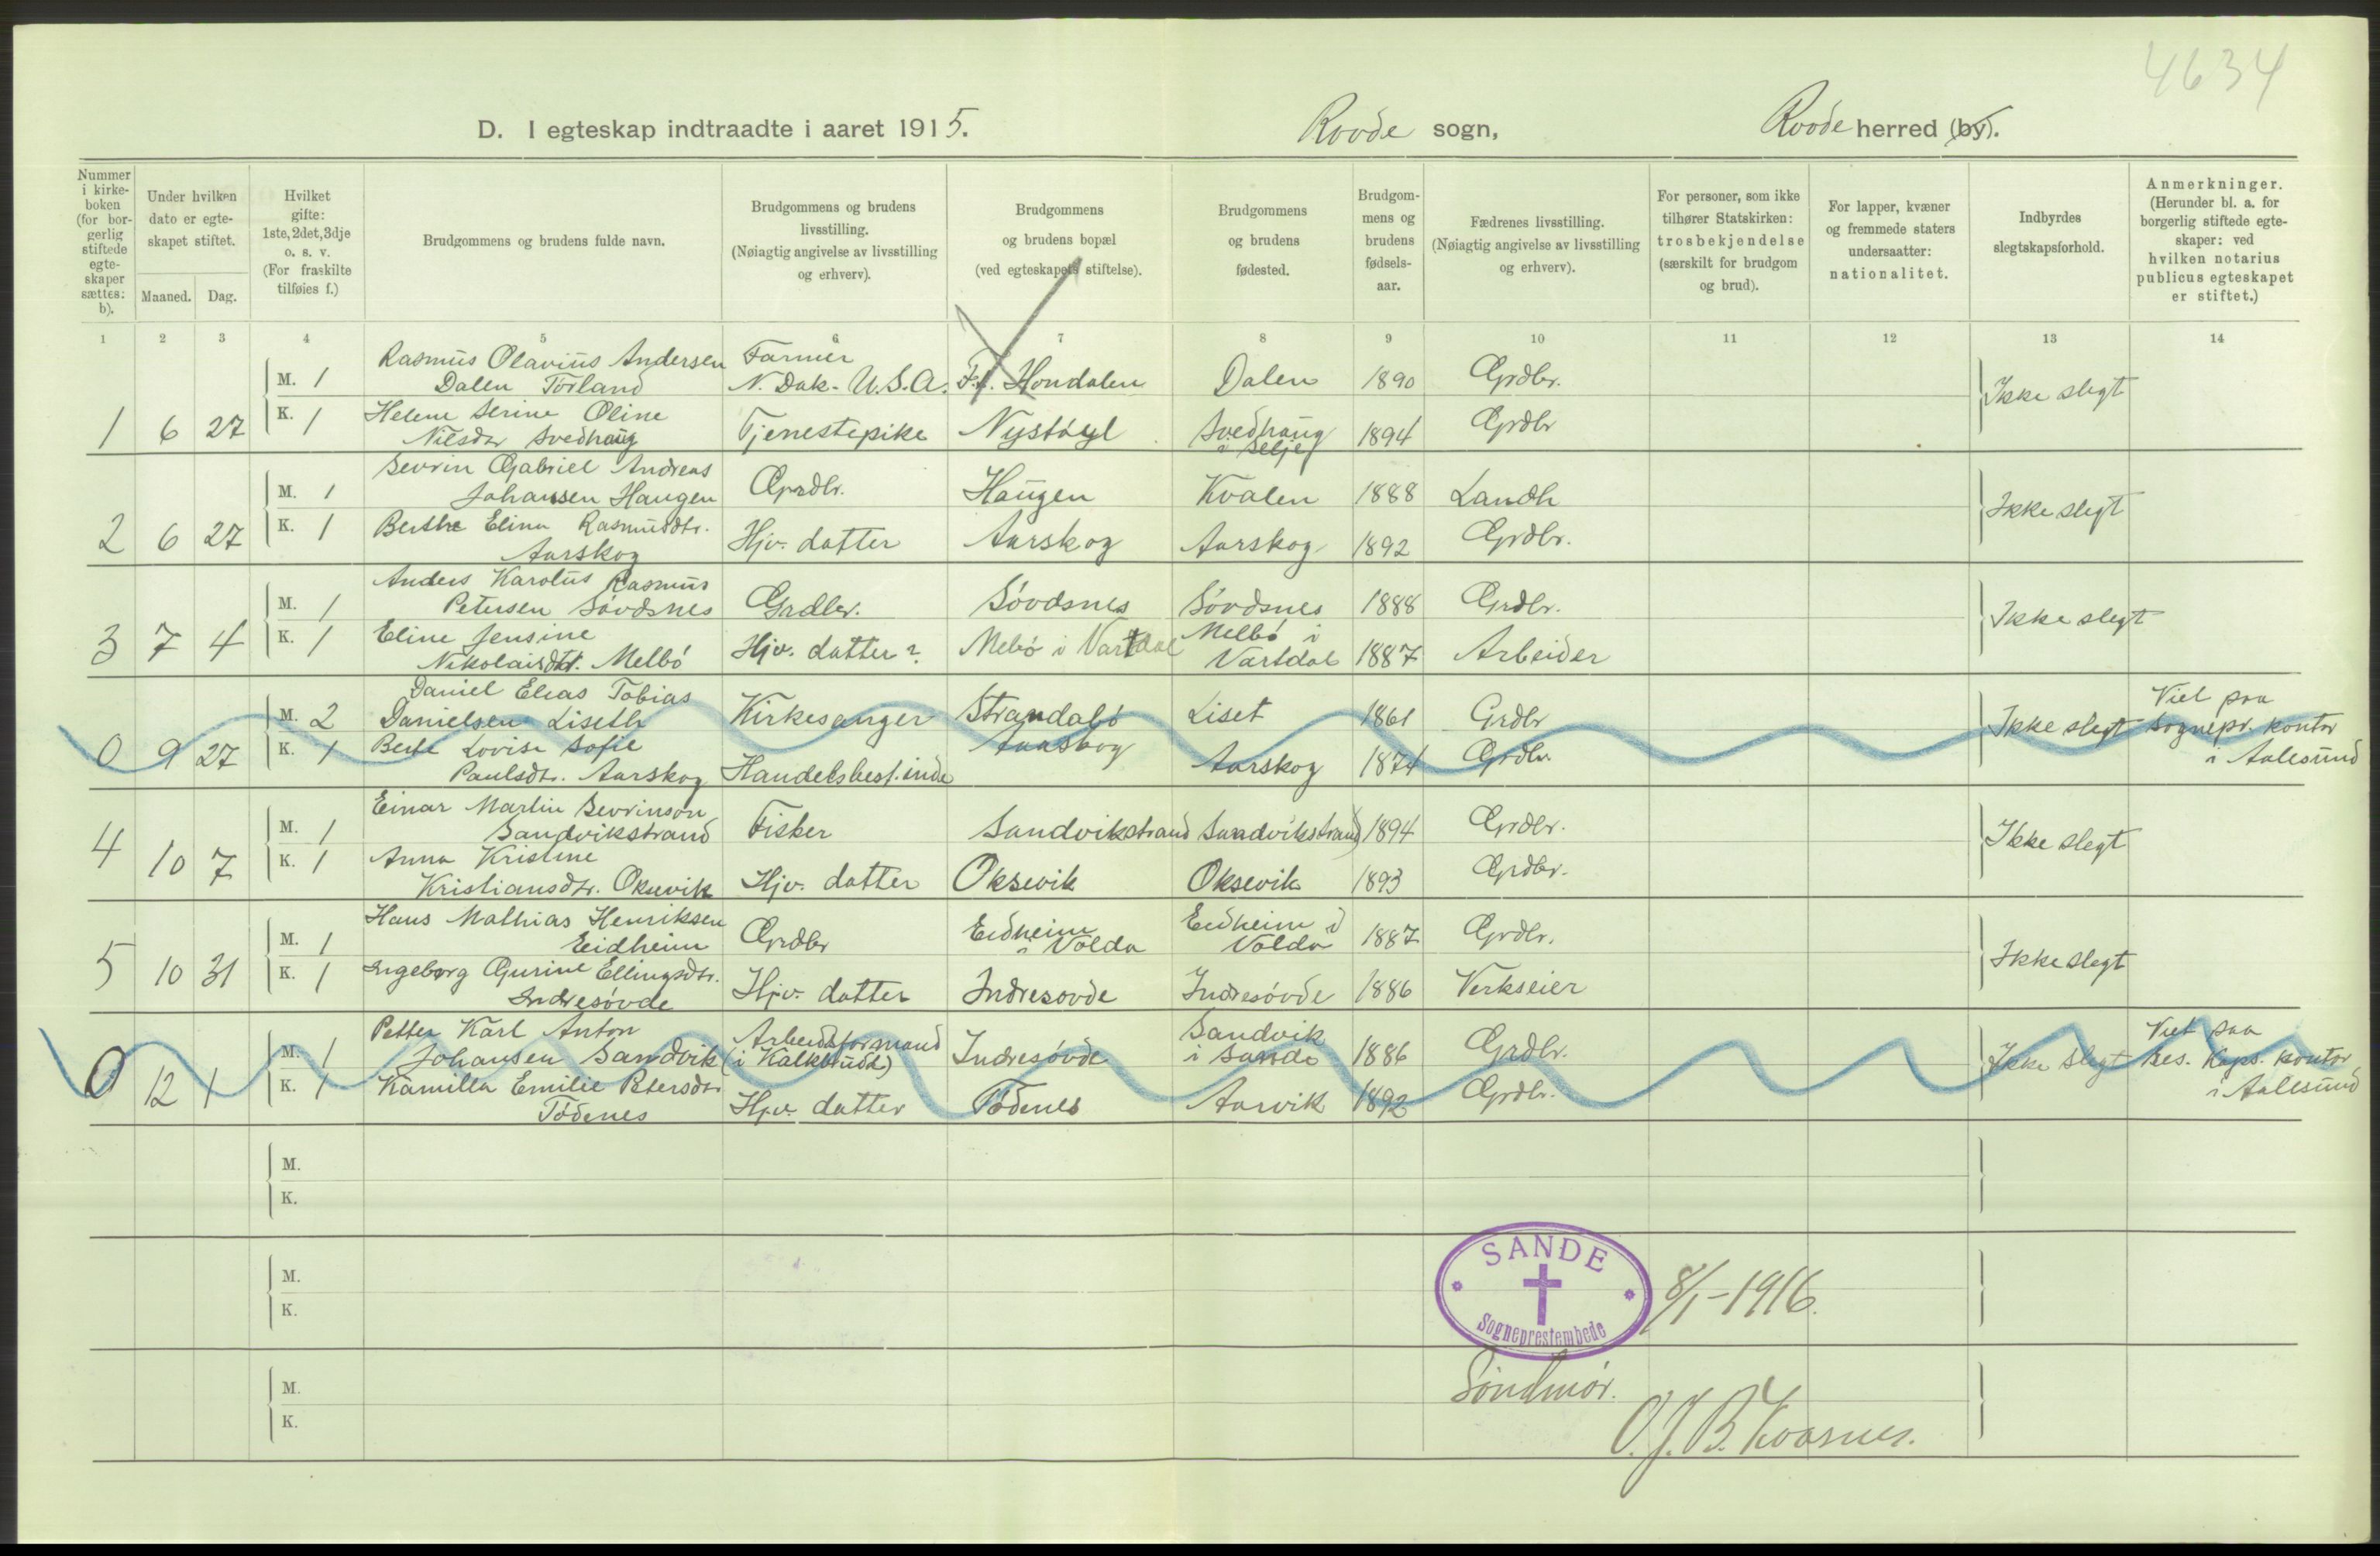 4634
D. I egteskap indtraadte i aaret 1915. Rovde sogn, Rovde herred (by).
Nummer i kirke- boken (for bor- gerlig stiftede egte- skaper sættes: b).
Under hvilken dato er egte- skapet stiftet.
Maaned. Dag.
Hvilket gifte: 1ste, 2det, 3dje o. s. v. (For fraskilte tilføies f.)
Brudgommens og brudens fulde navn.
Brudgommens og brudens livsstilling. (Nøiagtig angivelse av livsstilling og erhverv).
Brudgommens og brudens bopæl (ved egteskapets stiftelse).
Brudgommens og brudens fødested.
Brudgom- mens og brudens fødsels- aar.
Fædrenes livsstilling. (Nøiagtig angivelse av livsstilling og erhverv).
For personer, som ikke tilhører Statskirken: trosbekjendelse (særskilt for brudgom og brud).
For lapper, kvæner og fremmede staters undersaatter: nationalitet.
Indbyrdes slegtskapsforhold.
Anmerkninger. (Herunder bl. a. for borgerlig stiftede egte- skaper: ved hvilken notarius publicus egteskapet er stiftet.)
1 2 3 4 5 6 7 8 9 10 11 12 13 14
Rasmus Olavius Andersen Farmer
M. 1 Dalen Törland N. Dak. U.S.A. Hondalen Dalen 1890 Grdbr. Ikke slegt
K. 1 Helene Serine Oline
1 6 27 Nilsdr Svedhaug Tjenestepike Nystöyl Svedhaug i Selje 1894 Grdbr
Sevrin Gabriel Andreas
M. 1 Johansen Haugen Grdbr. Haugen Kvalen 1888 Landh Ikke slegt
K. 1 Berthe Elina Rasmusdtr.
2 6 27 Aarskog Hjv. datter Aarskog Aarskog 1892 Grdbr.
Anders Karolus Rasmus
M. 1 Petersen Sövdsnes Grdbr. Sövdsnes Sövdsnes 1888 Grdbr. Ikke slegt
K. 1 Eline Jensine
3 7 4 Nikolaisdtr. Melbö Hjv. datter? Melbö i Vartdal Melbö i Vartdal 1887 Arbeider
Daniel Elias Tobias
M. 2 Danielsen Liseth Kirkesanger Strandabö Liset 1861 Grdbr Ikke slegt Viet paa sognepr. kontor i Aalesund
K. 1 Berte Lovise Sofie
0 9 27 Paulsdtr. Aarskog Handelsbest.inde Aarskog Aarskog 1874 Grdbr.
Einar Martin Sevrinson
M. 1 Sandvikstrand Fisker Sandvikstrand Sandvikstrand 1894 Grdbr. Ikke slegt
K. 1 Anna Kristine
4 10 7 Kristiansdtr. Oksevik Hjv. datter Oksevik Oksevik 1893 Grdbr.
Hans Mathias Henriksen
M. 1 Eidheim Grdbr Eidheim i Volda Eidheim i Volda 1887 Grdbr. Ikke slegt
K. 1 Ingeborg Gurine Ellingsdtr.
5 10 31 Indresövde Hjv. datter Indresovde Indresövde 1886 Verkseier
Petter Karl Anton Arbeidsformand
M. 1 Johansen Sandvik (i Kalkbrudd) Indresövde Sandvik i Sande 1886 Grdbr. Ikke slegt Viet paa Res. Kaps. kontor i Aalesund
K. 1 Kamilla Emilie Petersdtr
0 12 1 Tödenes Hjv. datter Tödenes Aarvik 1892 Grdbr.
M.
K.
M.
K.
M.
K.
SANDE
Sogneprestembede
8/1-1916.
Söndmör.
O.J.B. Kvasnes.